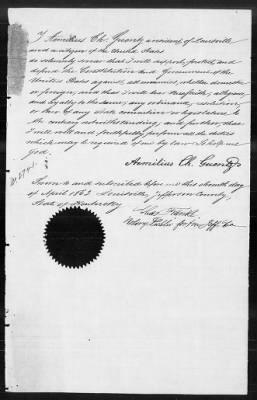 I Aemilius Ch. Guentz a resident of Louisville
and a citizen of the United States
do solemnly swear that I will support, protect, and
defend the Constitution and Government of the
United States against all enemies, whether domestic
or foreign, and that I will bear true faith, allegiance,
and loyalty to the same, any ordinance, resolution,
or law of any State convention or legislature to
the contrary notwithstanding, and further, that
I will well and faithfully perform all the duties
which may be required of me by law. So help me
God.
Aemilius Ch. Guentz
Sworn to and subscribed before me this day
of April 1863 Louisville, Jefferson County,
State of Kentucky
Notary Public for Jeff. Co